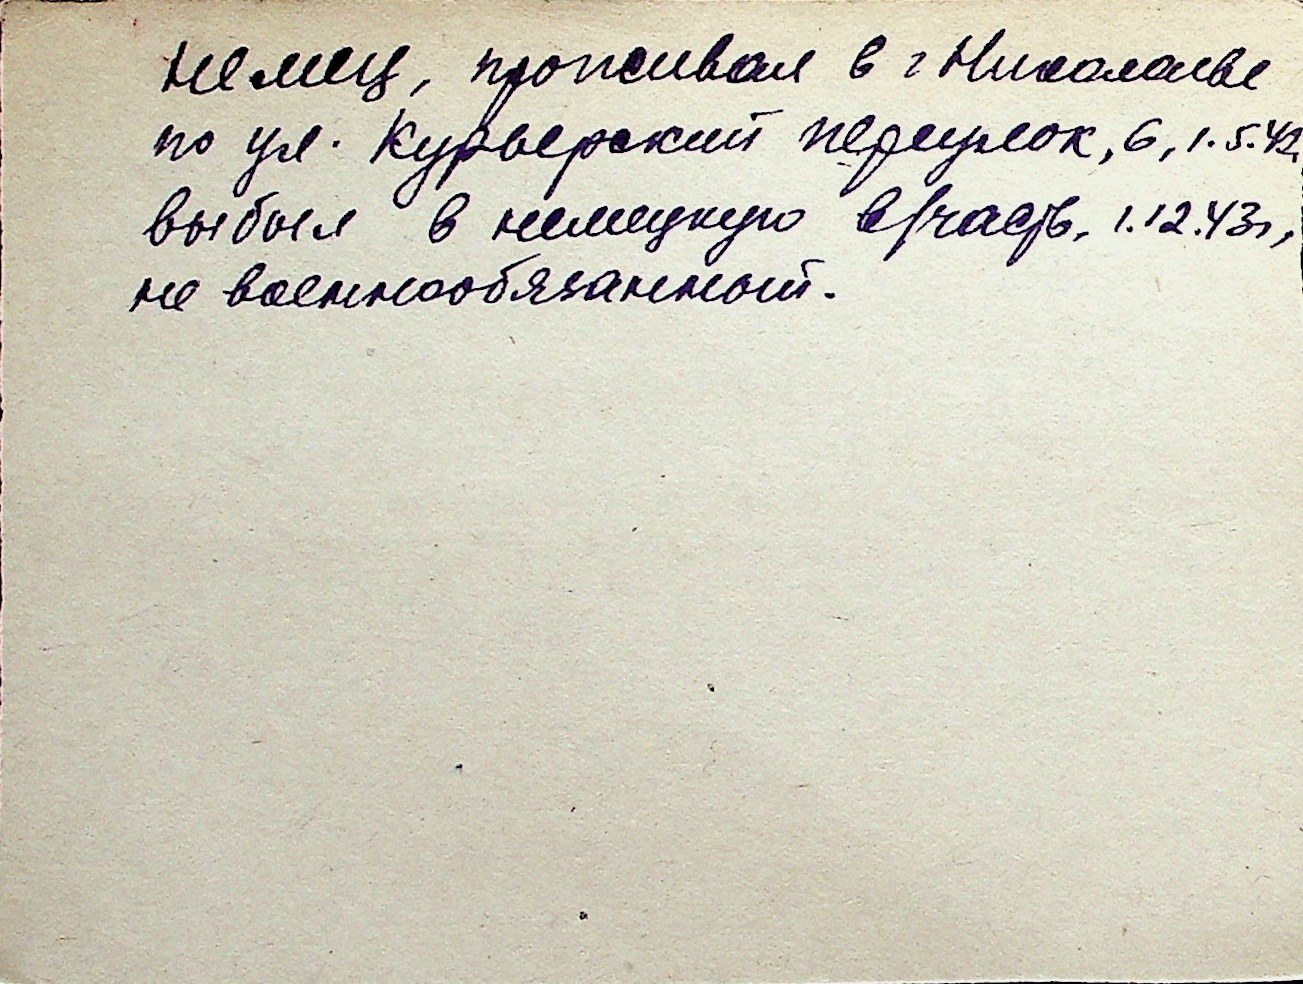 немец, проживал в г Николаеве
по ул. Курьерский переулок, 6, 1.5.42
выбыл в немецкую в/часть, 1.12.43г,
не военнообязанный.